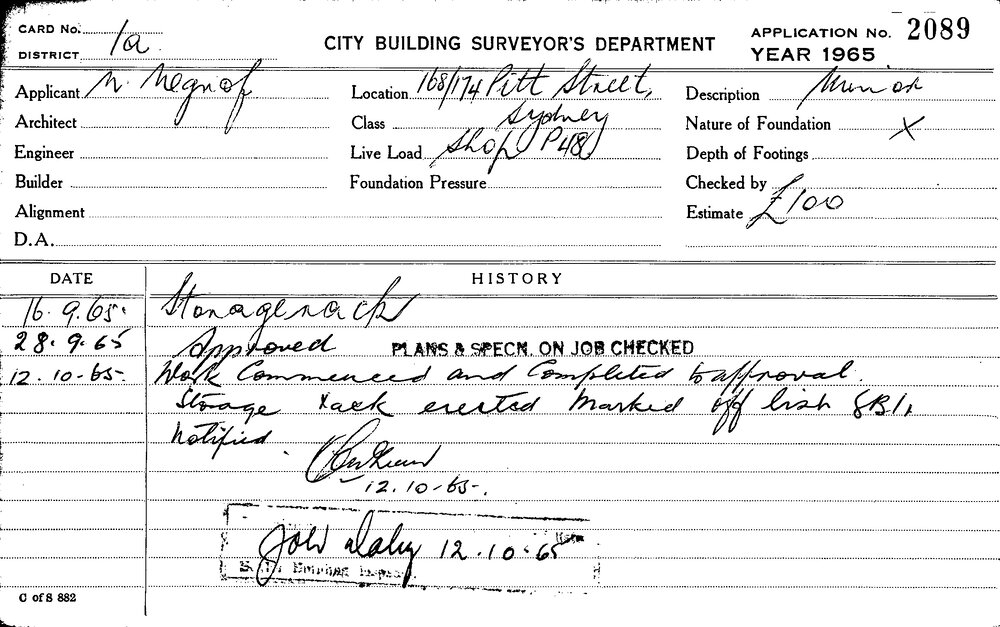 CARD No. 1a
DISTRICT
CITY BUILDING SURVEYOR'S DEPARTMENT
APPLICATION No. 2089
YEAR 1965
Applicant N. Negnof
Location 168/174 Pitt Street,
Sydney
Description Minor
Architect
Class
Nature of Foundation X
Engineer
Live Load Shop P48
Depth of Footings
Builder
Foundation Pressure
Checked by
Alignment
Estimate £100
D.A.
DATE HISTORY
16.9.65. Storage rack
28.9.65 Approved PLANS & SPECN. ON JOB CHECKED
12.10.65. Work Commenced and Completed to approval.
Storage rack erected Marked off list
Notified.
12.10.65.
John 12.10.65
Building
C of S 882